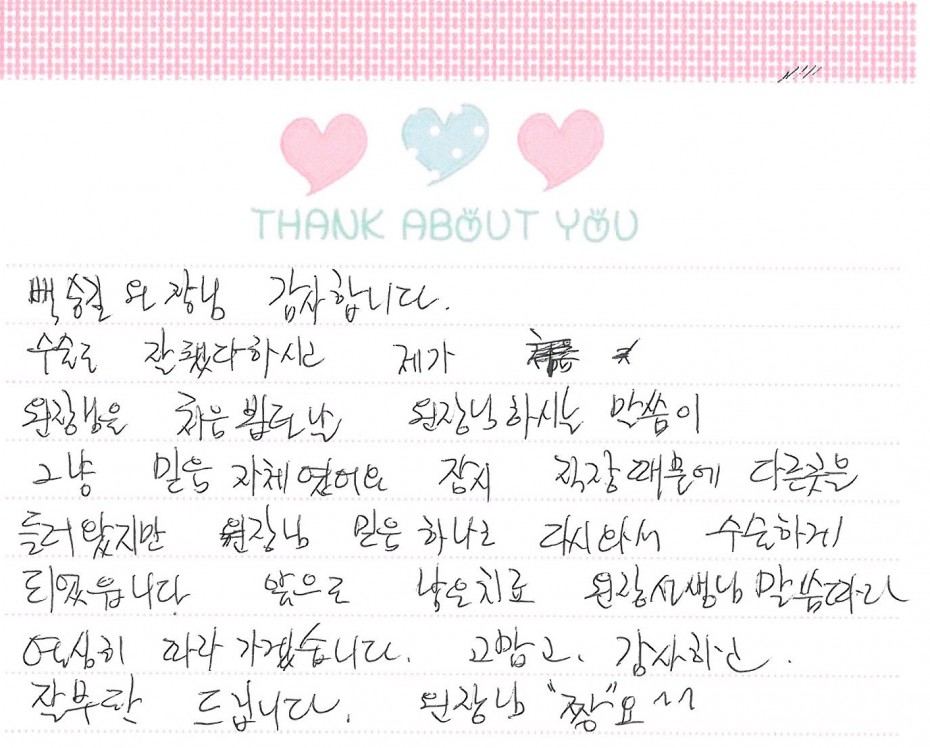 THANK ABOUT YOU
백승길 원장님 감사합니다.
수술도 잘됐다하시고 제가
원장님을 처음 뵙던날 원장님하시는 말씀이
그냥 믿음 자체였어요 잠시 직장때문에 다른곳을
들러왔지만 원장님 믿음 하나로 다시와서 수술하게
되였읍니다 앞으로 남은치료 원장선생님 말씀따라
여심히 따라가겠습니다. 고맙고, 감사하신.
잘부탁 드립니다. 원장님 "짱"요^^